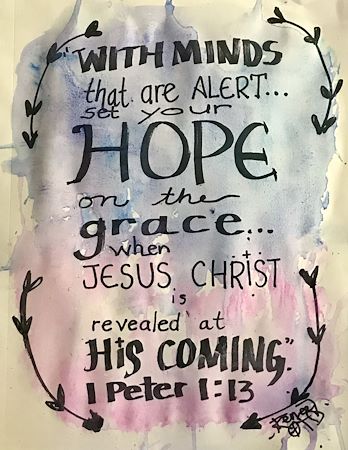 "WITH MINDS
that are ALERT...
set your
HOPE
on the
grace...
when
JESUS CHRIST
is
revealed at
HIS COMING."
1 Peter 1:13